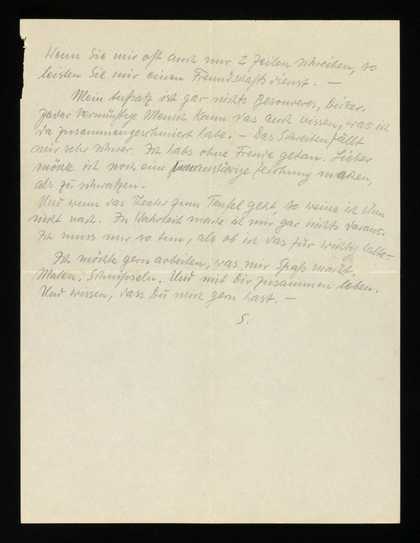 Wenn Sie mir oft auch nur 2 Zeilen schreiben, so
leisten Sie mir einen Freundschaftsdienst. —
Mein Aufsatz ist gar nichts Besonderes, bisher.
Jeder vernünftige Mensch kann das auch wissen, was ich
da zusammengeschmiert habe. — Das Schreiben fällt
mir sehr schwer. Ich habs ohne Freude getan. Lieber
möchte ich noch eine anständige Zeichnung machen,
als zu schwatzen.
Und wenn das Theater zum Teufel geht, so weine ich ihm
nicht nach. In Wahrheit mache ich mir gar nichts daraus.
Ich muss nur so tun, als ob ich das für wichtig halte—
Ich möchte gern arbeiten, was mir Spaß macht.
Malen. Schnipseln. Und mit Dir zusammen leben.
Und wissen, dass Du mich gern hast. —
S.